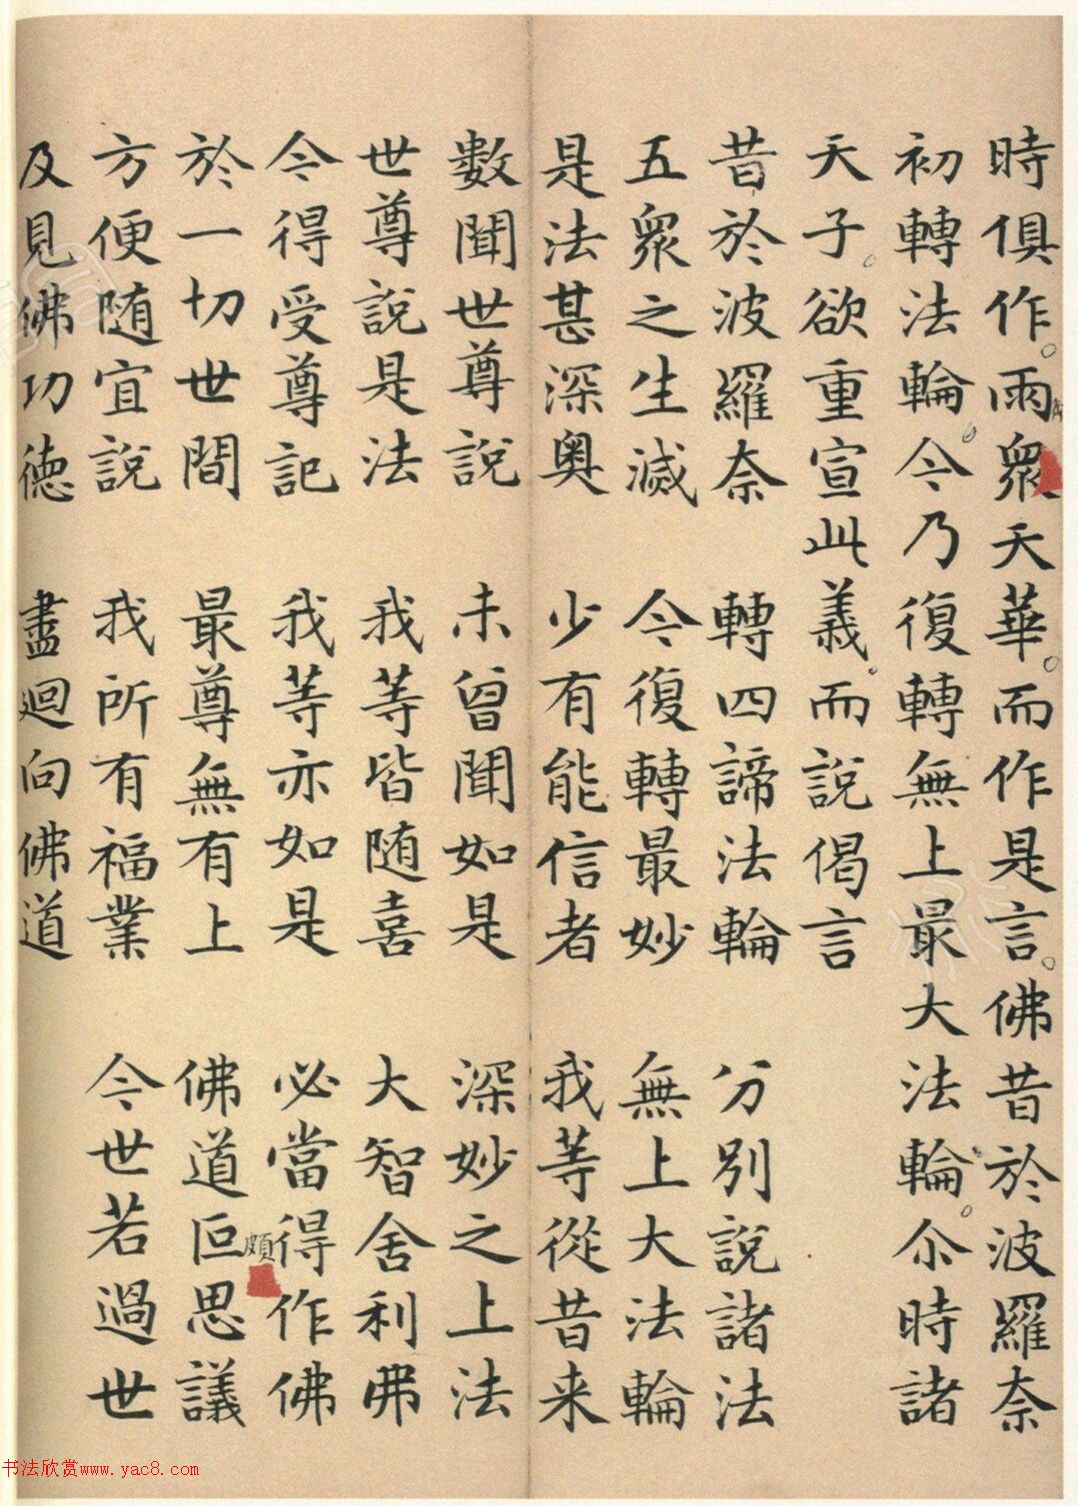 時俱作雨衆天華而作是言佛昔於波羅奈
初轉法輪今乃復轉無上最大法輪尒時諸
天子欲重宣此義而說偈言
昔於波羅奈 轉四諦法輪 分別說諸法
五衆之生滅 今復轉最妙 無上大法輪
是法甚深奥 少有能信者 我等從昔来
數聞世尊說 未曾聞如是 深妙之上法
世尊說是法 我等皆随喜 大智舍利弗
今得受尊記 我等亦如是 必當得作佛
於一切世間 最尊無有上 佛道叵思議
頗
方便随宜說 我所有福業 今世若過世
及見佛功德 盡迴向佛道
书法欣赏www.yac8.com